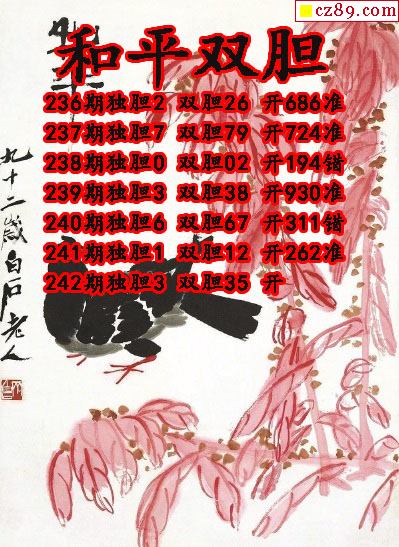 cz89.com
和平双胆
236期独胆2 双胆26 开686准
237期独胆7 双胆79 开724准
238期独胆0 双胆02 开194错
239期独胆3 双胆38 开930准
240期独胆6 双胆67 开311错
241期独胆1 双胆12 开262准
242期独胆3 双胆35 开
九十二岁白石老人